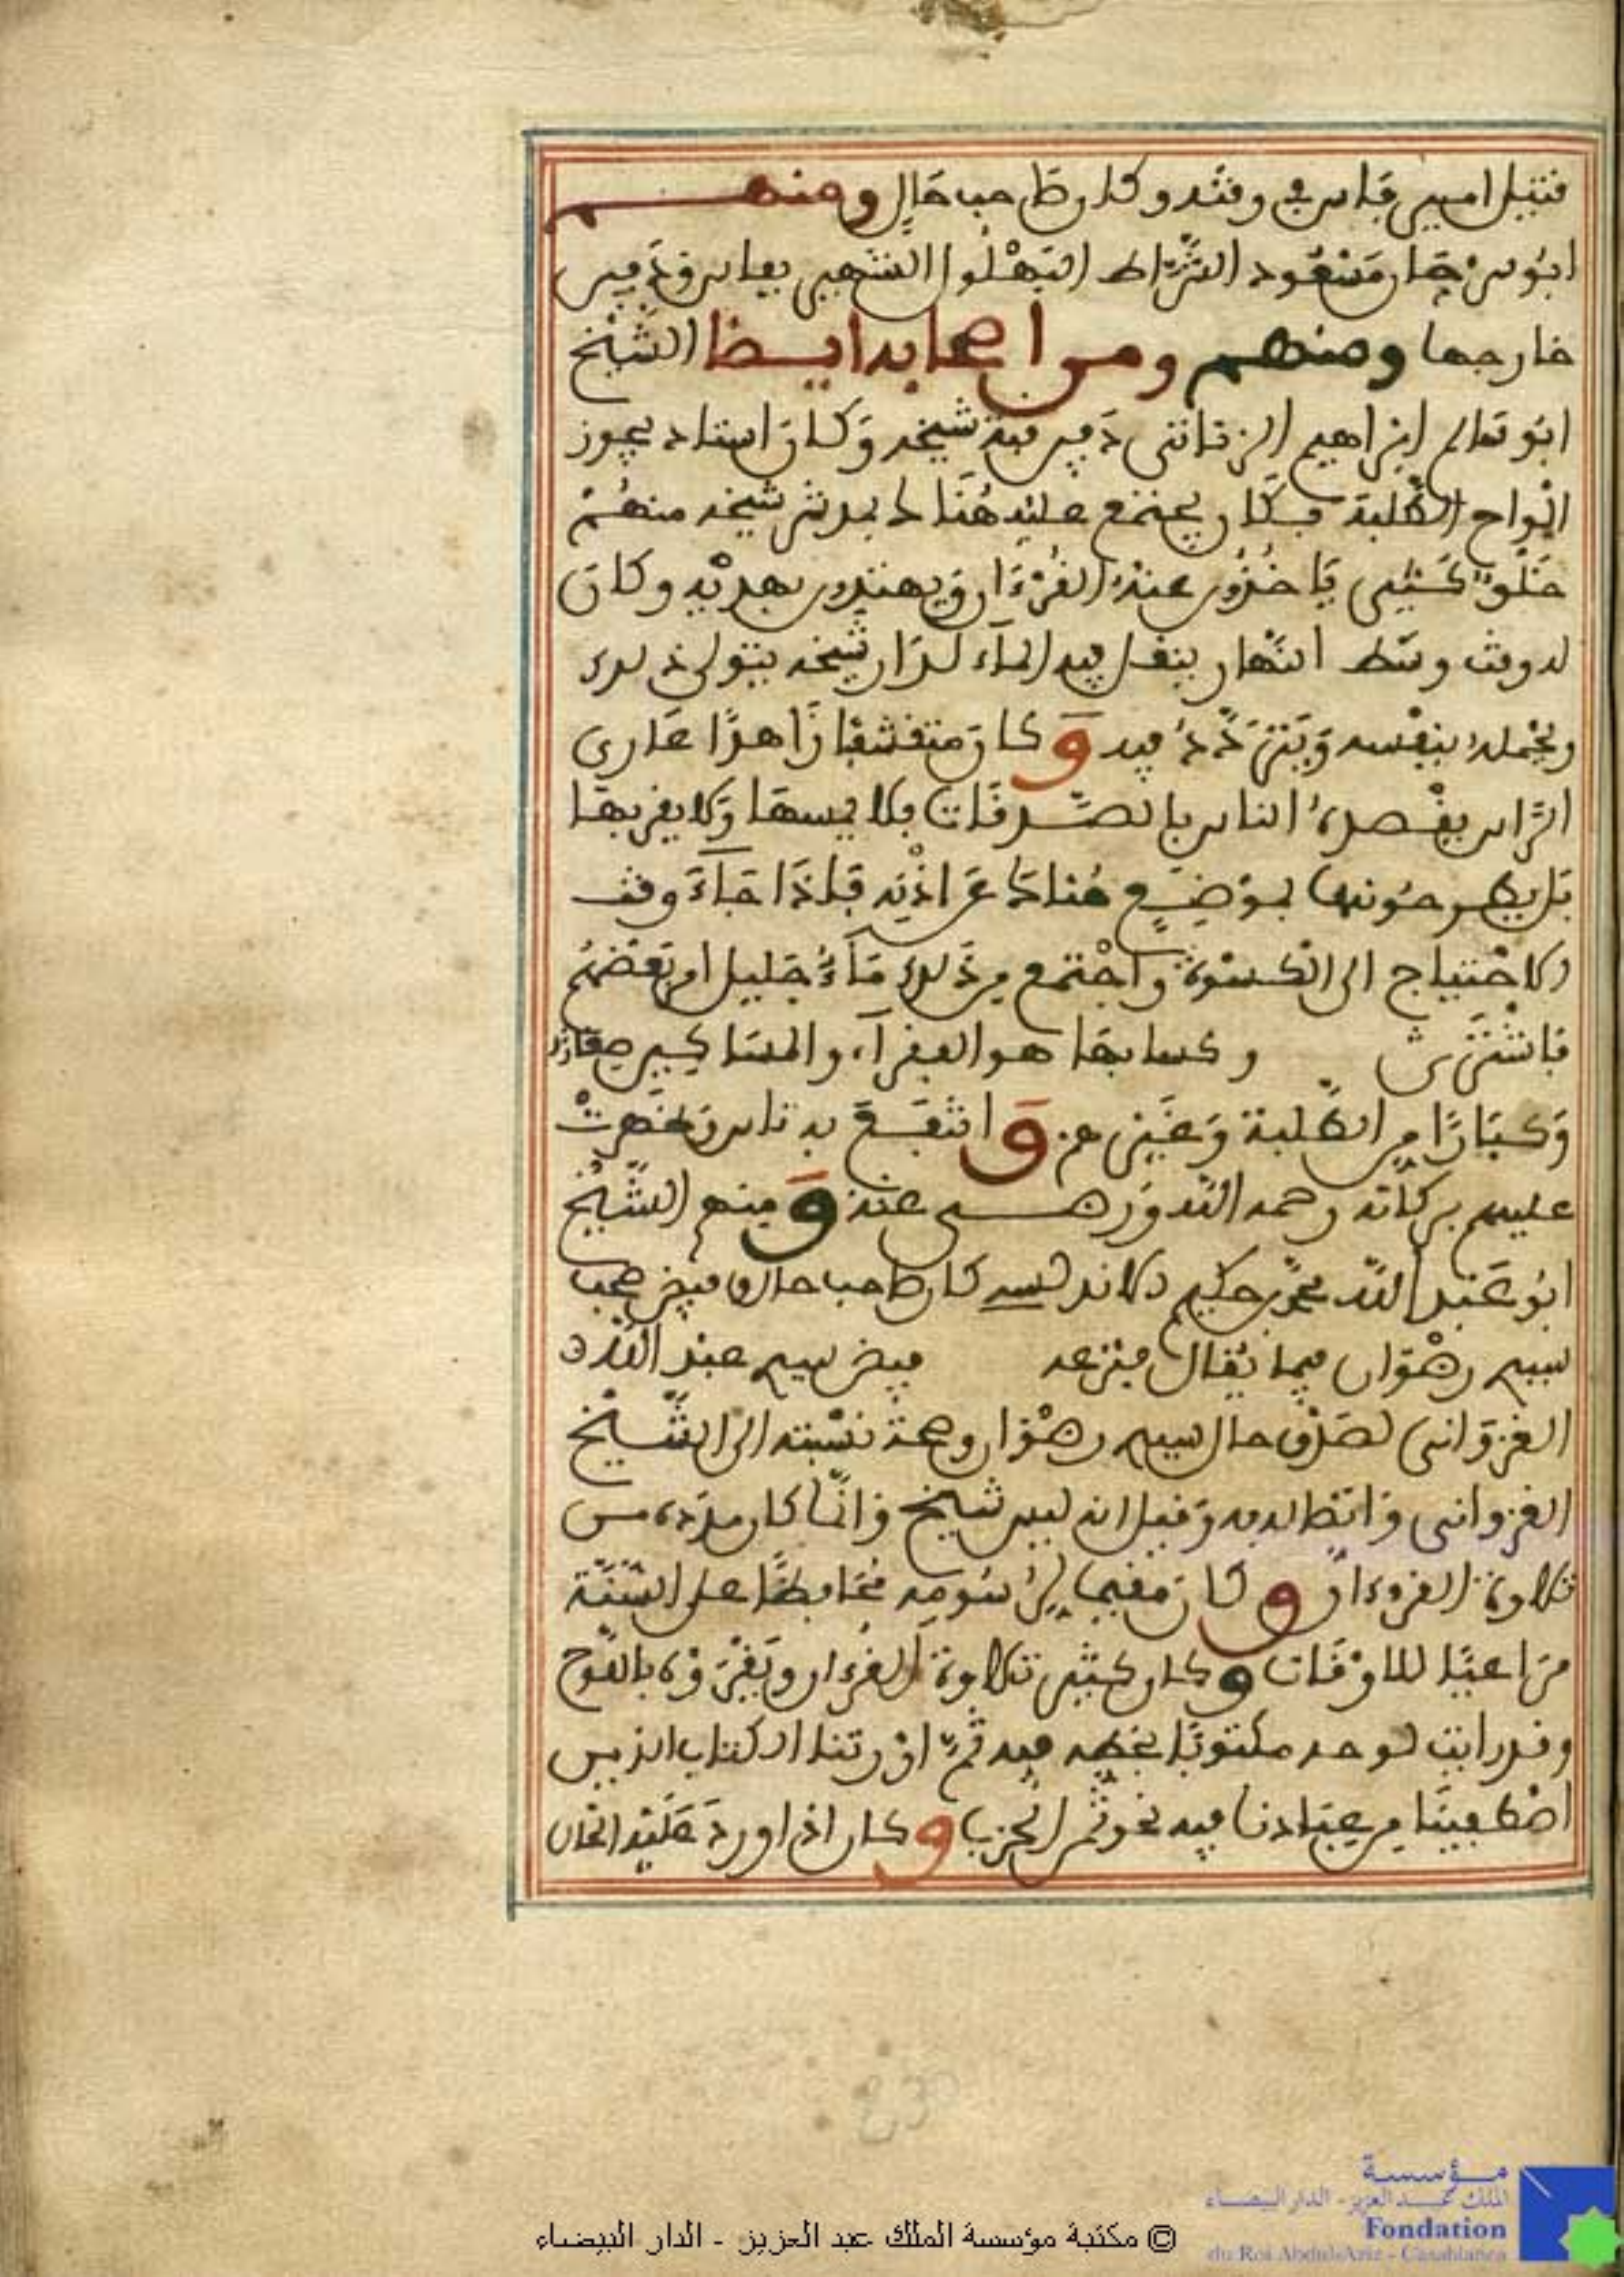 قتيل امير فاس في وقته وكان صاحب حال ومنهم
ابو سرحان مسعود الشراط البهلول الشهير بفاس ودفين
خارجها ومنهم ومن اصحابه ايضا الشيخ
ابو سالم ابراهيم الزناتي دفين فبة شيخه وكان استاذ يجوز
الواح الطلبة فكان يجتمع عليه هناك بمدشر شيخه منهم
خلق كثير ياخذون عنه القرءان ويهتدون بهديه وكان
له وقت وسط النهار ينقل فيه الماء لدار شيخه يتولى ذلك
ويحمله بنفسه ويتردد فيه وكان متقشفا زاهدا عاري
الراس يقصده الناس بالصدقات فلا يمسها ولا يقربها
بل يطرحونها بموضع هناك عن اذنه فاذا جاء وقت
الاحتياج الى الكسوة واجتمع من ذلك ماء جليل امر بعضهم
فاشترى وكسا بها هو الفقراء والمساكين صغارا
وكبارا من الطلبة وغيرهم وانتفع به ناس وظهرت
عليهم بركاته رحمه الله ورضي عنه ومنهم الشيخ
ابو عبد الله محمد حكيم الاندلسي كان صاحب حال فيض صحب
سيدي رضوان فيما يقال منزعه فيض سيدي عبد الله
الغزواني لصدق حال سيدي رضوان وصحة نسبته الى الشيخ
الغزواني واتصاله به وقيل انه ليس شيخ وانما كان مدده من
تلاوة القرءان وكان مقيما لرسومه محافظا على السنة
مراعيا للاوقات وكان كثير تلاوة القرءان ويقرؤه بالوح
وقد رايت لوحه مكتوبا بخطه فيه ثم اورثنا الكتاب الذين
اصطفينا من عبادنا فيه نحو ثمن الحزب وكان اذا ورد عليه الحال
مؤسسة
الملك عبد العزيز - الدار البيضاء
Fondation
du Roi Abdul-Aziz - Casablanca
© مكتبة مؤسسة الملك عبد العزيز - الدار البيضاء